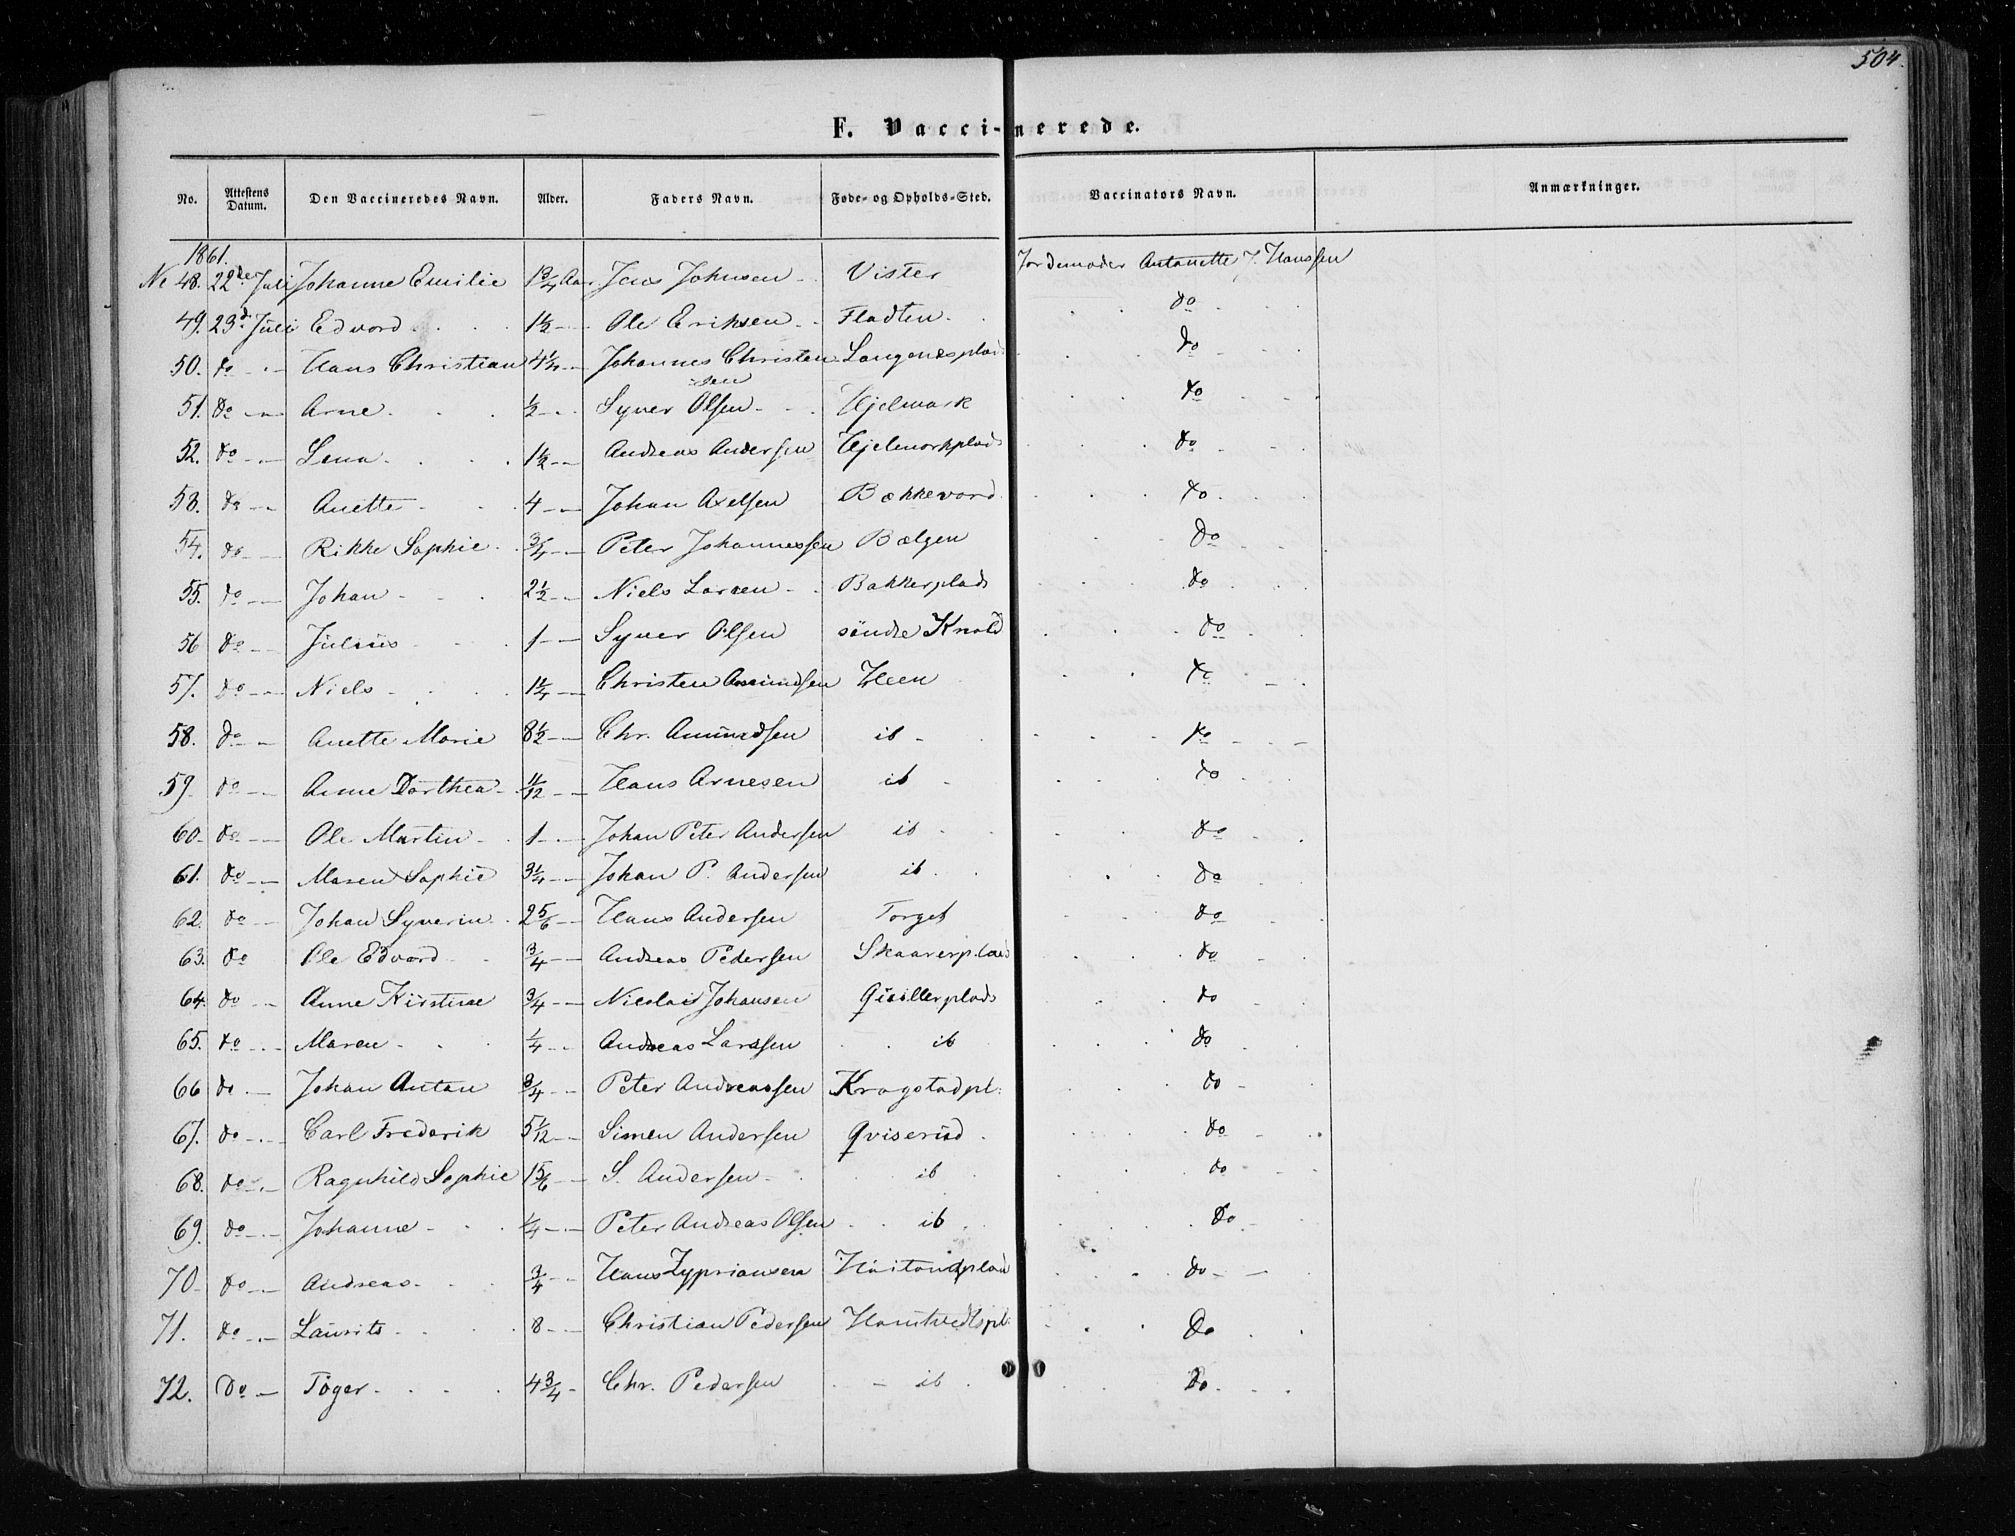 504.
F. Vaccinerede.
No. Attestens Datum. Den Vaccineredes Navn. Alder. Faders Navn. Føde- og Opholds-Sted. Vaccinators Navn. Anmærkninger.
1861.
No 48. 22de Juli Johanne Emilie 1 3/4 Aar Jens Johnsen Vister Jordemoder Antonette J. Hanssen
49. 23d Juli Edvard 1 1/2 Ole Eriksen Fladten do
50. do Hans Christian 4 1/2 Johannes Christensen Langenesplads do
51. do Arne 1/2 Syver Olsen Hjelmark do
52. do Lena 1 1/2 Andreas Andersen Hjelmarkplads do
53. do Anette 4 Johan Axelsen Bækkevard do
54. do Rikke Sophie 3/4 Peter Johannessen Bælgen do
55. do Johan 2 1/2 Niels Larsen Bakkerplads do
56 do Julius 1 Syver Olsen søndre Knold do
57. do Niels 1 1/4 Christen Amundsen Heen do
58. do Anette Marie 8 1/2 Chr. Amundsen ib do
59. do Anne Dorthea 11/12 Hans Arnesen ib do
60. do Ole Martin 1 Johan Peter Andersen ib do
61. do Maren Sophie 3 1/4 Johan P. Andersen ib do
62. do Johan Syverin 2 5/6 Hans Andersen Torget do
63. do Ole Edvard 3/4 Andreas Pedersen Skaarerplads do
64. do Anne Kirstine 3/4 Nicolai Johansen do
65. do Maren 1/4 Andreas Larssen ib do
66 do Johan Antan 3/4 Peter Andreassen Kragstadpl: do
67. do Carl Frederik 5 1/12 Simen Andersen Qviserud do
68. do Ragnhild Sophie 1 5/6 S. Andersen ib do
69. do Johanne 1/4 Peter Andreas Olsen ib do
70. do Andreas 3/4 Hans Zypriansen do
71. do Laurits 8 Christian Pedersen Hamtvedtspl: Do
72. Do Tøger 4 3/4 Chr. Pedersen ib Do